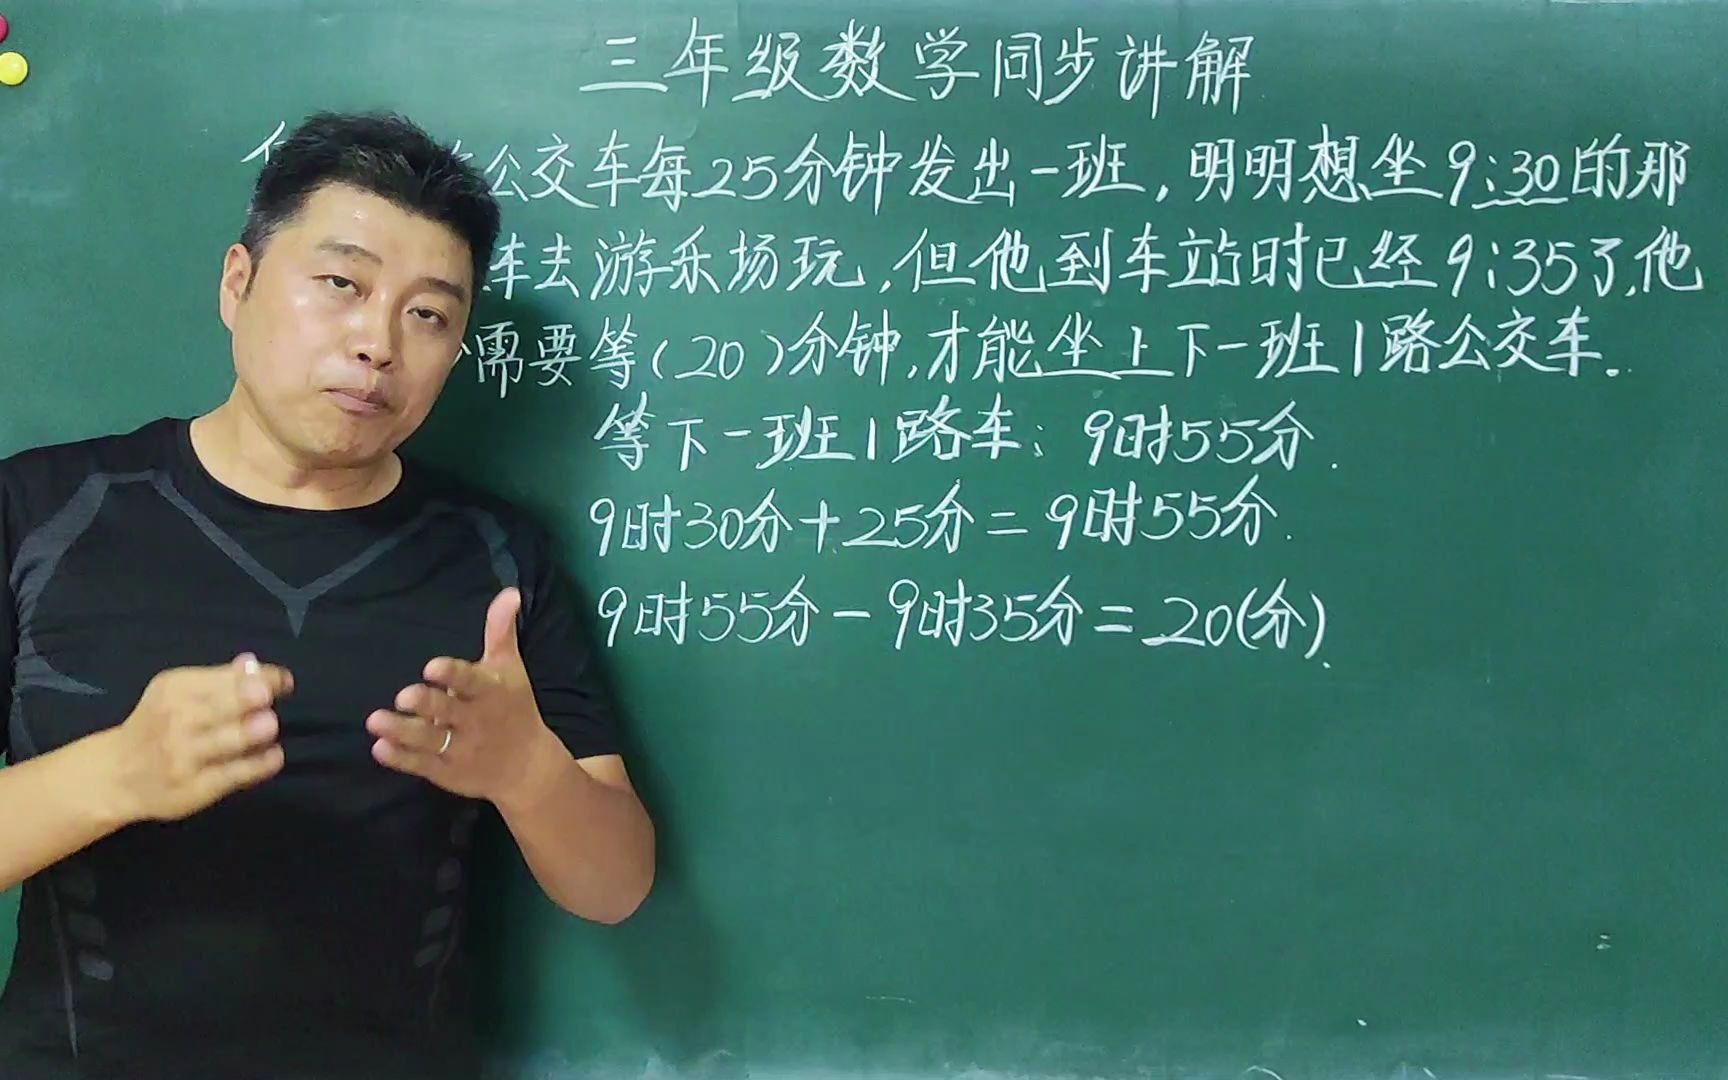 三年级数学同步讲解
公交车每25分钟发出一班,明明想坐9:30的那
车去游乐场玩,但他到车站时已经9:35了,他
需要等(20)分钟,才能坐上下一班1路公交车.
等下一班1路车:9时55分.
9时30分+25分=9时55分.
9时55分-9时35分=20(分).